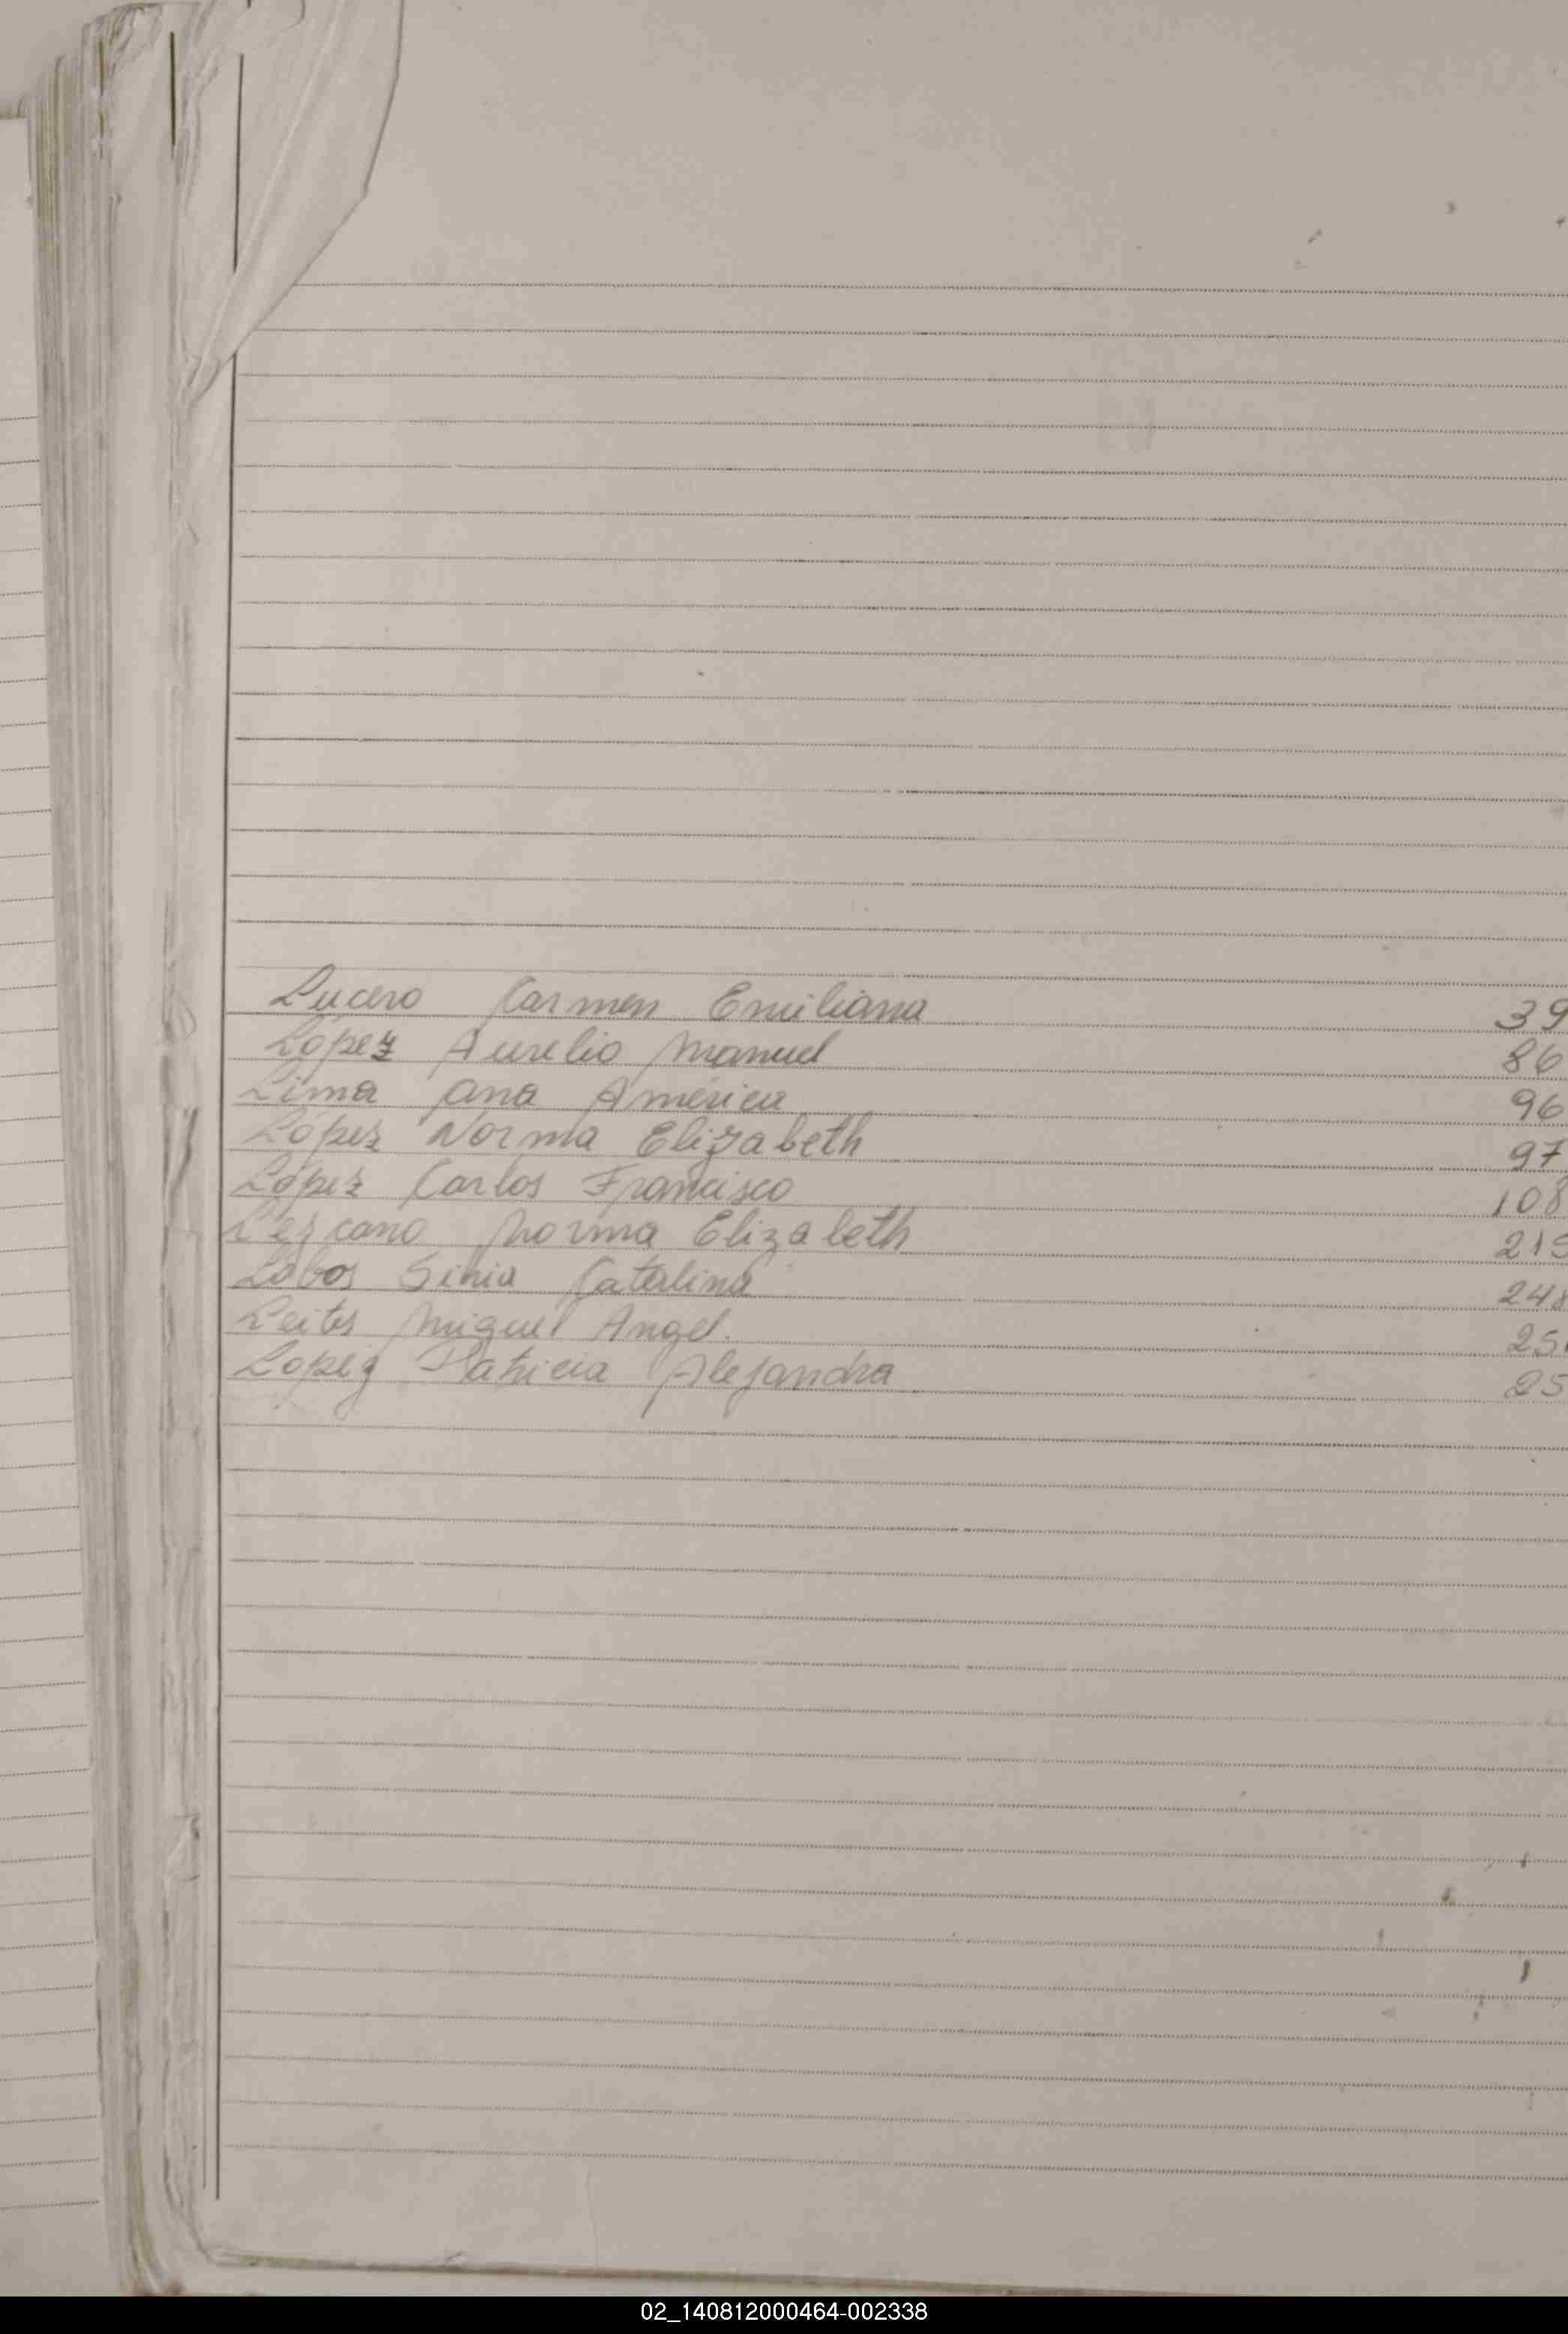 Lucero Carmen Emiliana 39
López Aurelio Manuel 86
Lima Ana América 96
López Norma Elizabeth 97
López Carlos Francisco 108
Lezcano Norma Elizabeth 219
Lobos Silvia Catalina 248
Leites Miguel Angel. 25
Lopez Patricia Alejandra 25
02_140812000464-002338